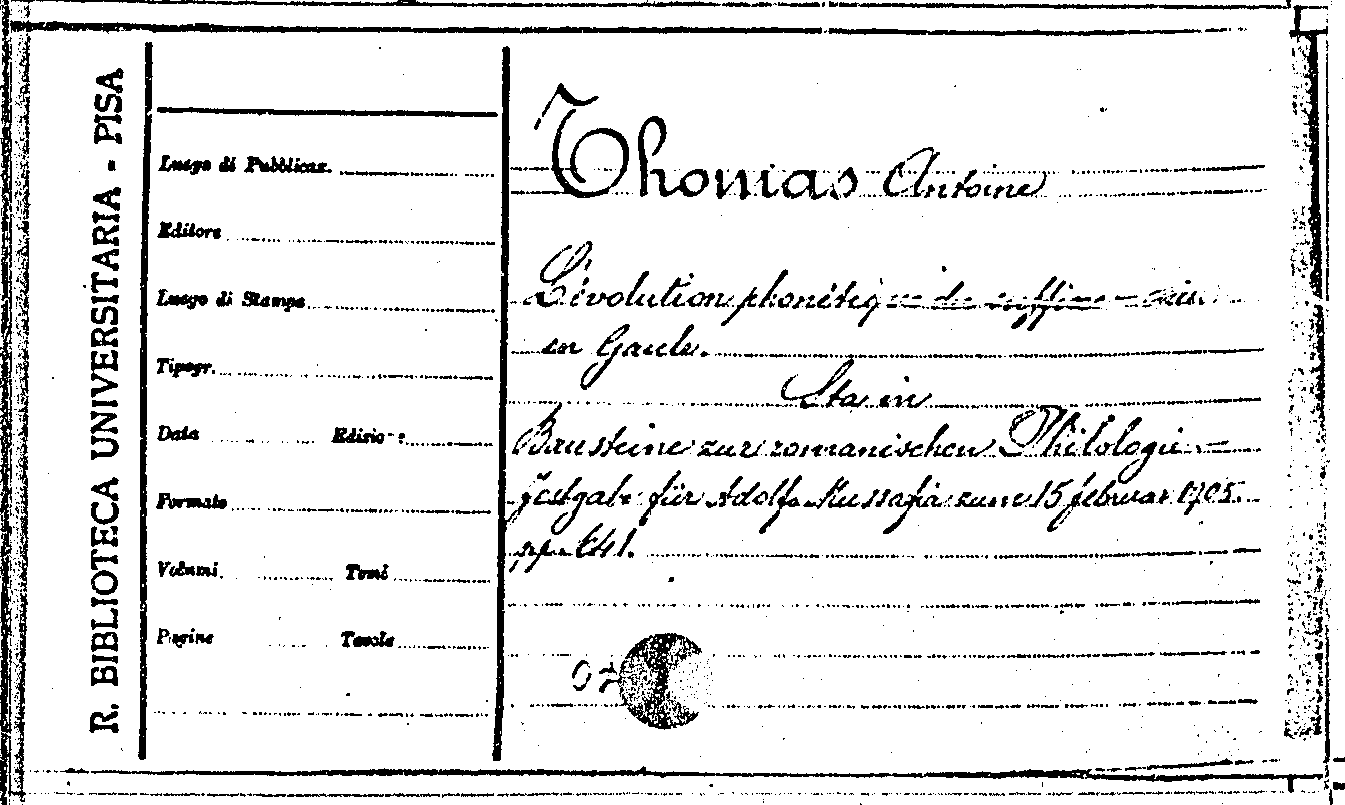 R. BIBLIOTECA UNIVERSITARIA - PISA
Luogo di Pubblicaz.
Editore
Luogo di Stampa
Tipogr.
Data Edizio
Formato
Volumi Tomi
Pagine Tavole
Thomas Antoine
L'évolution phonétique du suffixe
en Gaule.
Sta in
Bausteine zur romanischen Philologie =
Festgabe für Adolfo Mussafia zum 15 februar 1905.
pp. 641.